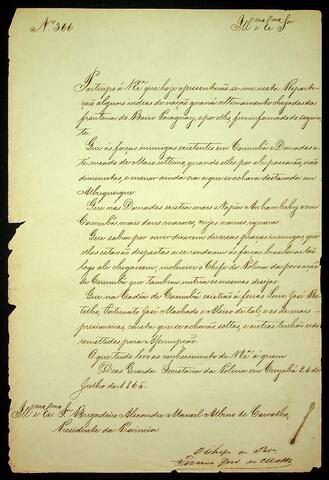 Nº 366
Illmo Exmo Snr
Participo á V.Exª que hoje apresentarão-se me nesta Reparti-
ção alguns indios da nação guaná ultimamente chegados da
fronteira do Baixo Paraguay, e por elles fui informado do seguin-
te.
Que as forças inimigas existentes em Corumbá e Dourados a-
té meado de Maio ultimo, quando elles por ali passarão, erão
diminutas, e menor ainda era a que se achava destacada em
Albuquerque.
Que nos Dourados existia mais o Major e em
Corumbá mais dous maiores, cujos nomes ignora.
Que sabia por ouvir dizerem diversas praças inimigas, que
ellas estavão dispostas a se renderem ás forças brasileiras tão
logo ali chegassem, inclusive o Chefe de Policia da povoação
de Corumbá que tambem nutria os mesmos desejos.
Que na Cadeia de Corumbá existia a ferros Luis José Bo-
telho, Fortunato José Machado e Aleixo de tal, e os demais
prisioneiros, consta que se achavão soltos, e muitos tinhão sido
remettidos para Assumpção.
O que tudo levo ao conhecimento de V.Exª á quem
Deos Guarde. Secretaria da Policia em Cuyabá 24 de
Julho de 1865.
Illmo e Exmo Sr Brigadeiro Alexandre Manoel Albino de Carvalho,
Presidente da Provincia.
O Chefe de Pol.
Firmo José de Mattos